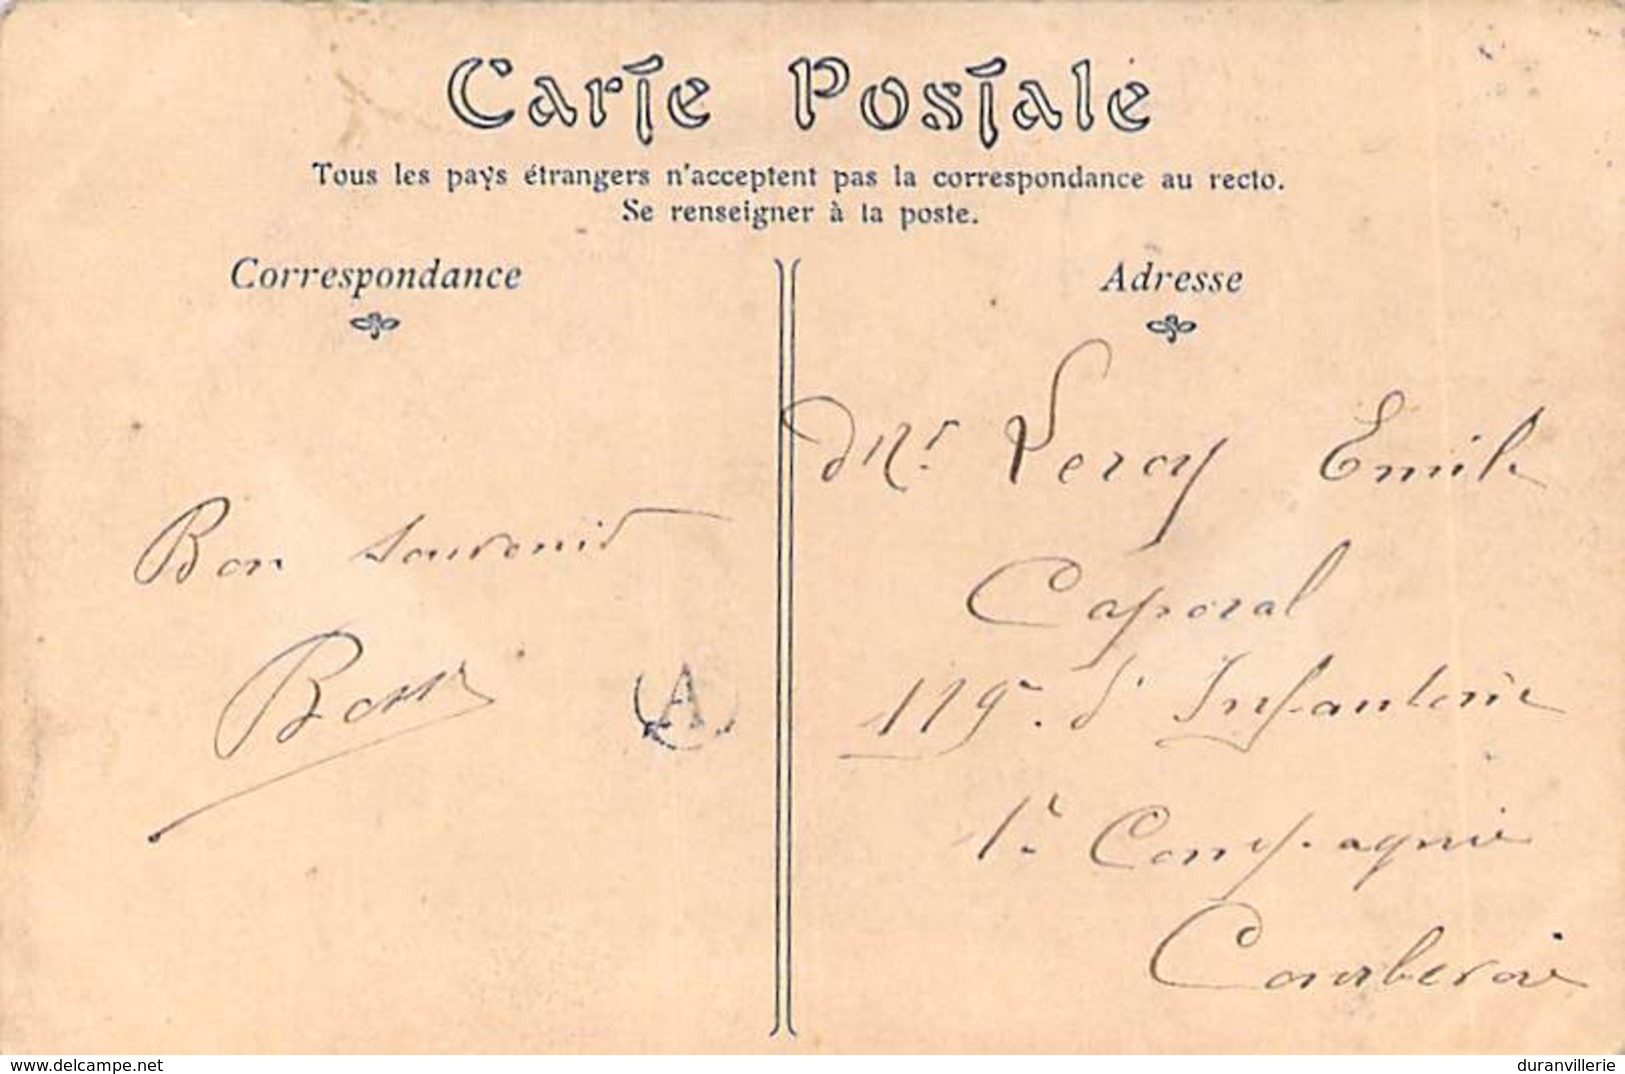 Carte Postale
Tous les pays étrangers n'acceptent pas la correspondance au recto.
Se renseigner à la poste.
Correspondance
Adresse
Mr. Percy Emile
Caporal
119e. d'Infanterie
1e Compagnie
Courbevoie
Bon souvenir
A
www.delcampe.net
duranvillerie